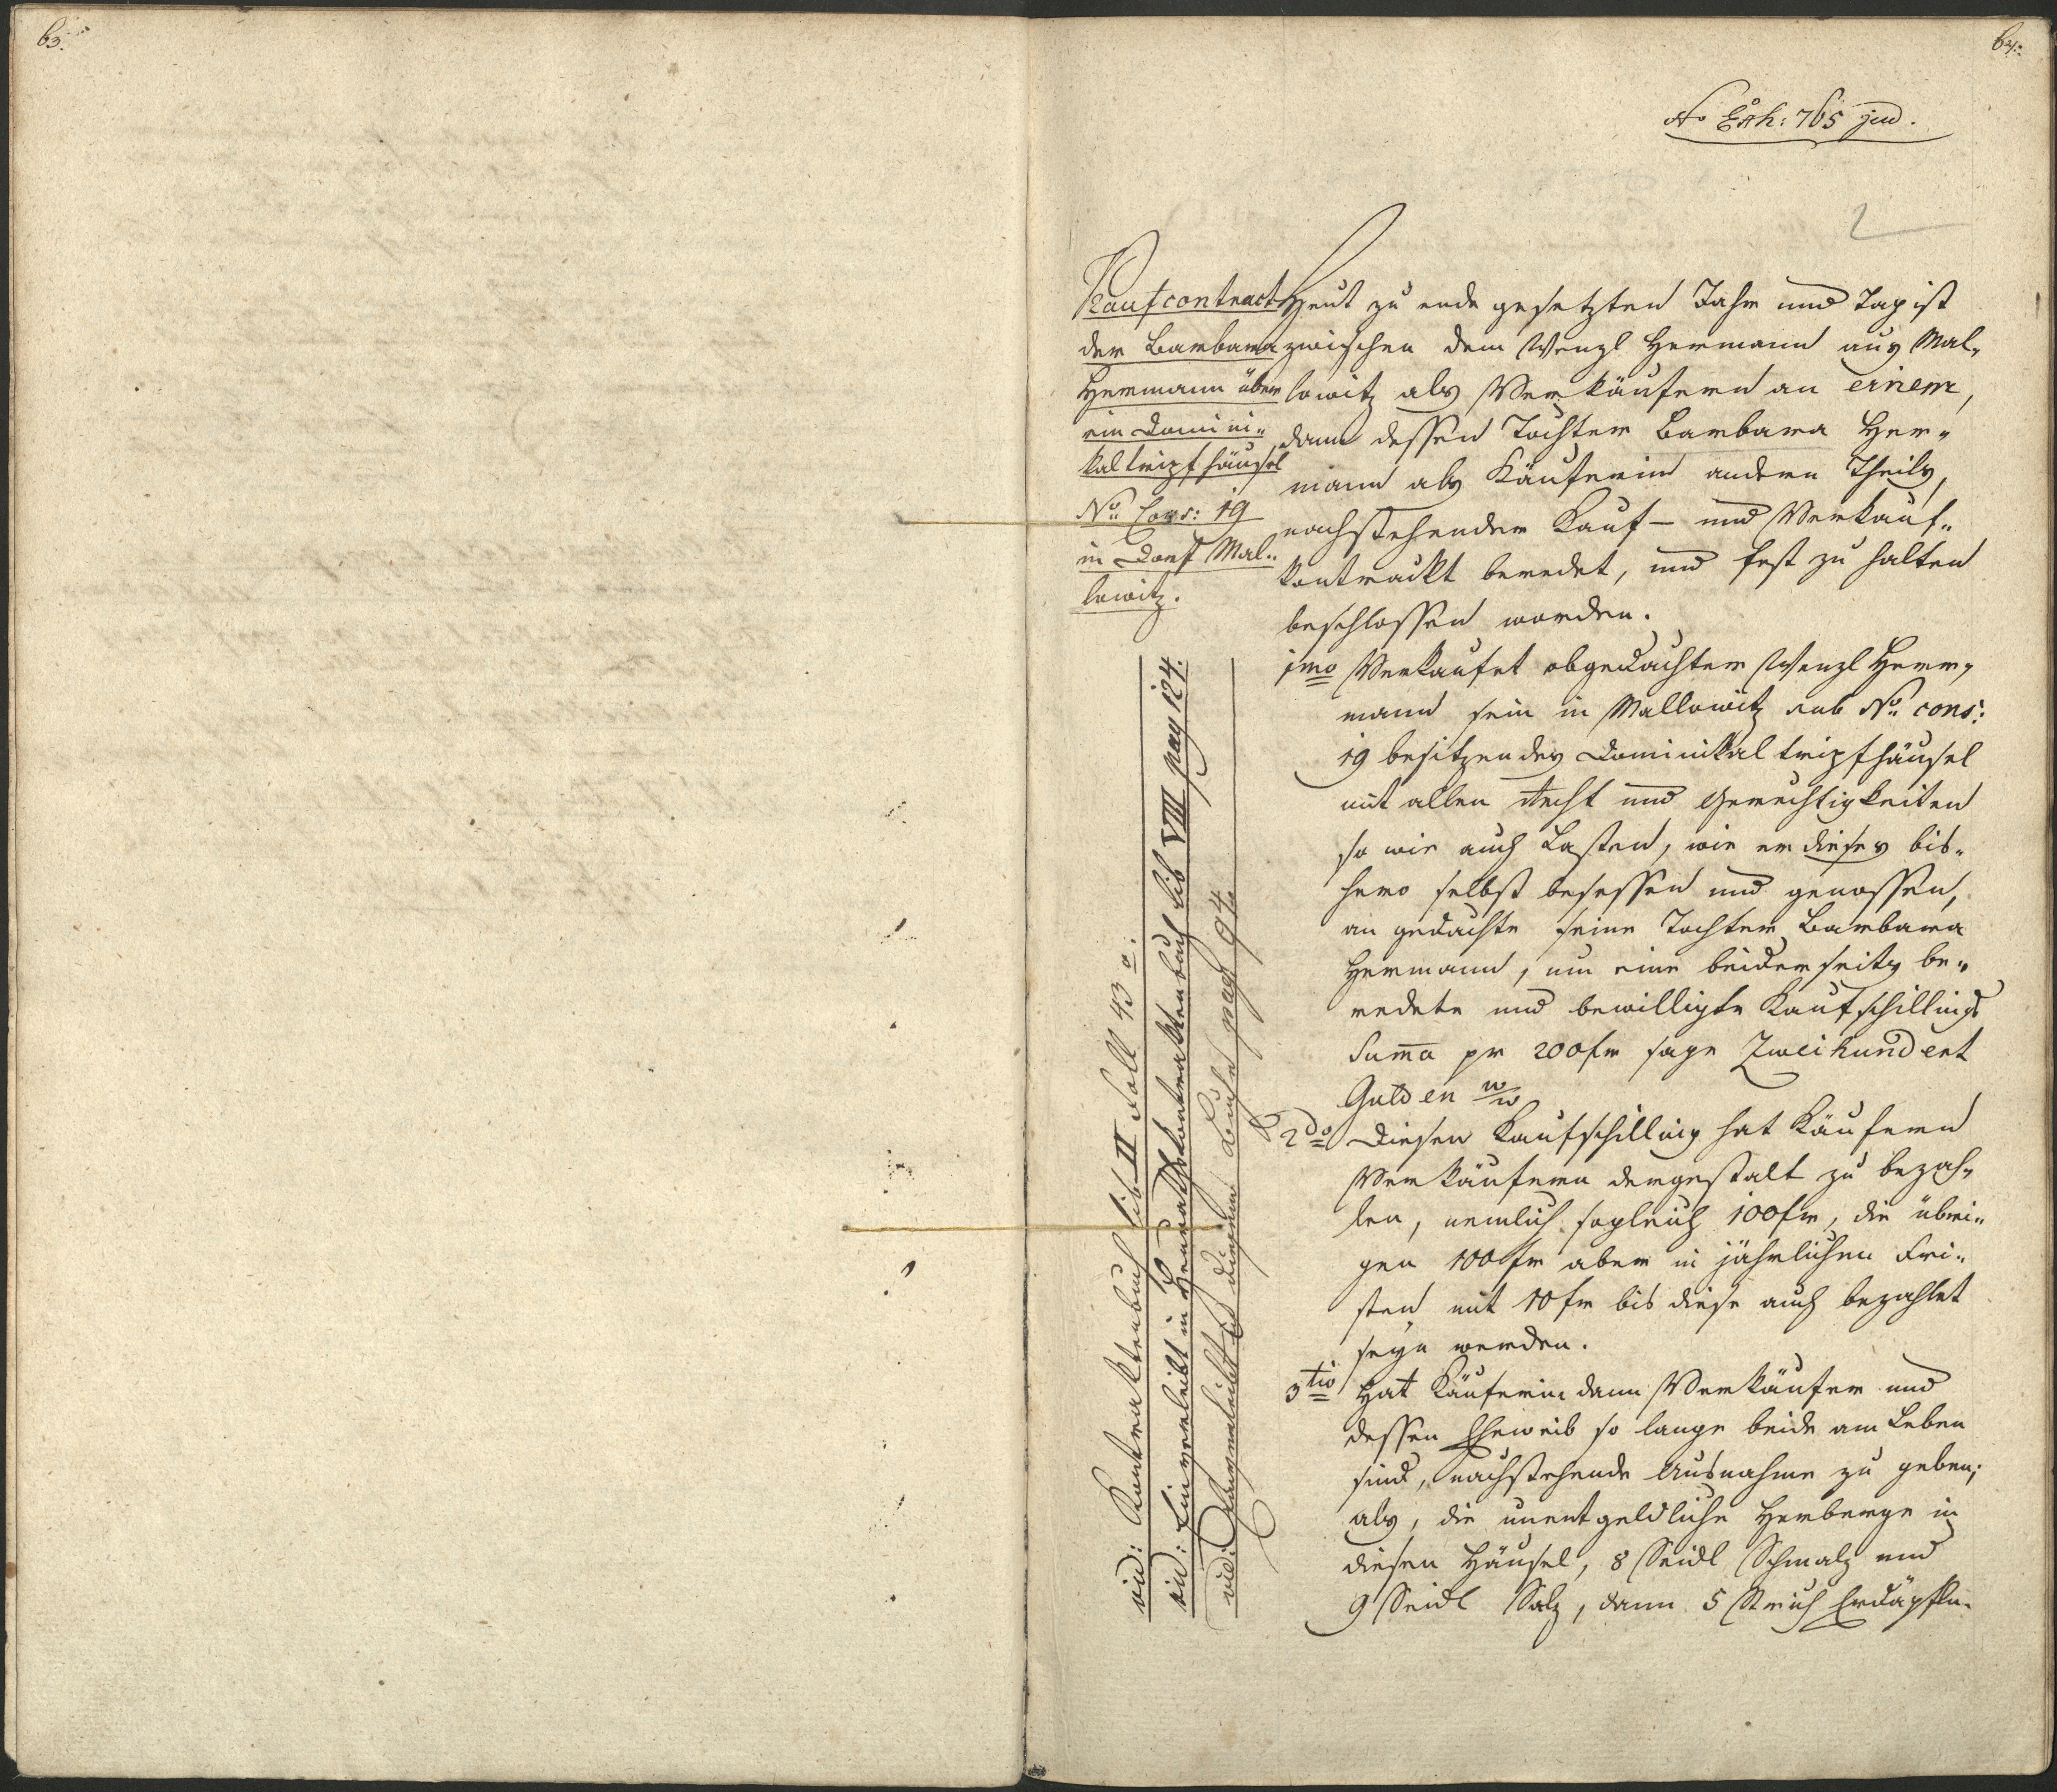 63.
64.
No Exh: 765 jud.
2
Kaufcontract
der Barbara
Hermann über
ein Domini„
kaltripfhäusel
No. Cons: 19
in Dorf Mal„
lowitz.
Heut zu ende gesetzten Jahr und Tag ist
zwischen dem Wenzl Hermann aus Mal„
lowitz als Verkäufern an einem,
dann dessen Tochter Barbara Her„
mann als Käuferin andern Theils,
nachstehender Kauf- und Verkauf„
kontrackt beredet, und fest zu halten
beschlossen worden.
1mo Verkaufet obgedachter Wenzl Herr„
mann sein in Mallowitz sub No. cons:
19 besitzendes Dominikal tripfhäusel
mit allen Recht und Gerechtigkeiten
so wie auch Lasten, wie er dieses bis„
hero selbst besessen und genossen,
an gedachte seine Tochter Barbara
Hermann, um eine beiderseits be„
redete und bewilligte Kaufschillings
Suma pr 200 fr sage Zweihundert
Gulden W/W
2do Diesen Kaufschilling hat Käufern
Verkäufern dergestalt zu bezah„
len, nemlich sogleich 100 fr, die übri„
gen 100 fr aber in jährlichen Fri„
sten mit 10 fr bis diese auch bezahlet
seyn werden.
3tio Hat Käuferin dann Verkäufer und
dessen Eheweib so lange beide am Leben
sind, nachstehende Ausnahme zu geben;
als, die unentgeldliche Herberge in
diesen Häusel, 8 Seidl Schmalz und
9 Seidl Salz, dann 5 Strich Erdäpfln.
vid: Kontraktenbuch lib II Foll 43
vid: Einverleibt in Heurathskontraktenbuch Lib VIII pag 124.
vid: Einverleibt in diesem Buche pag 94